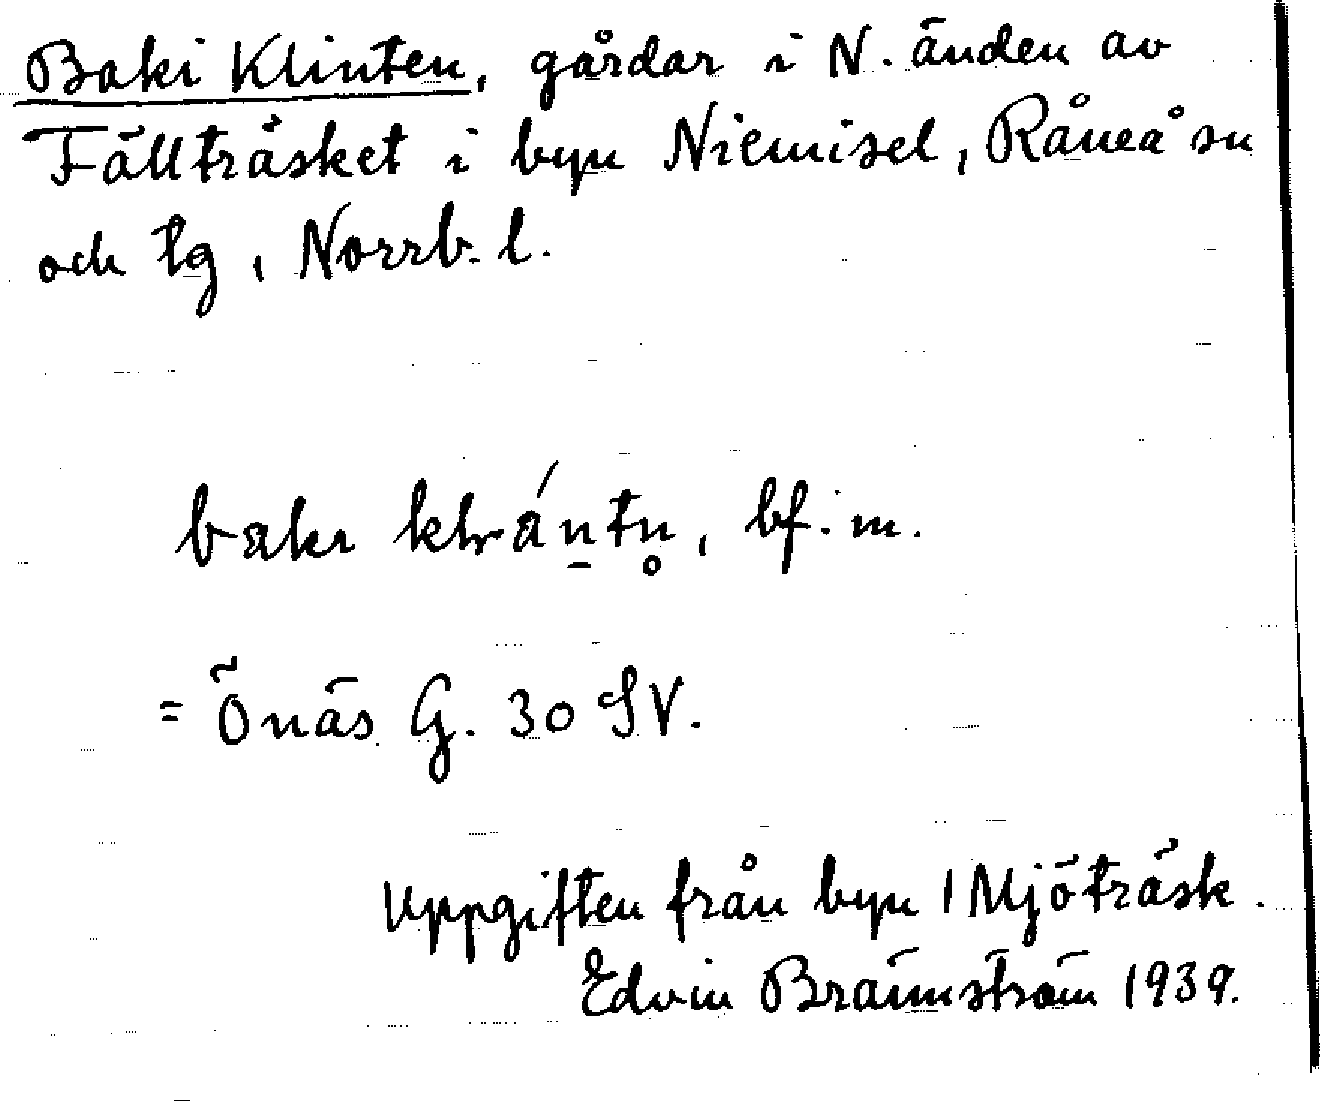 Baki Klinten, gårdar i N. änden av
Fällträsket i byn Niemisel, Råneå sn
och tg, Norrb. l.
baki , bf. m.
= Önäs G. 30 SV.
Uppgiften från byn Mjöträsk.
Edvin Brännström 1939.